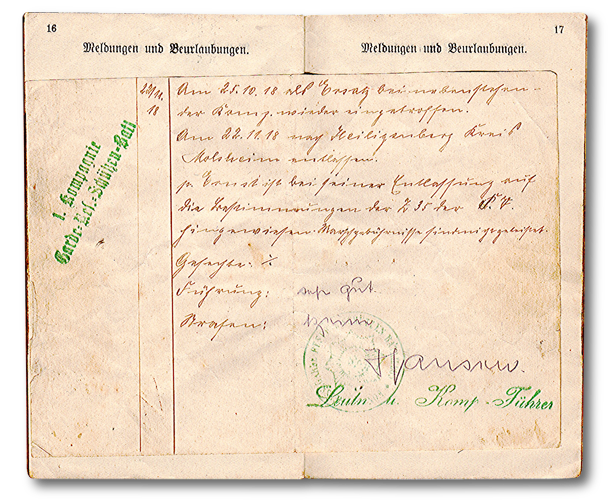 16
Meldungen und Beurlaubungen.
17
Meldungen und Beurlaubungen.
1. Kompagnie
Garde-Res.-Schützen-Batl
22/11.
18
Am 25.10.18 als Ersatz bei nebenstehen-
der Komp. wieder eingetroffen.
Am 22.11.18 nach Heiligenberg Kreis
Molsheim entlassen.
ist bei seiner Entlassung auf
die Bestimmungen der Z 35 der
hingewiesen. Marschgebührnisse sind
Gefechte: ·/.
Führung: sehr gut.
Strafen: keine
Hansen.
Leutn. u. Komp.-Führer